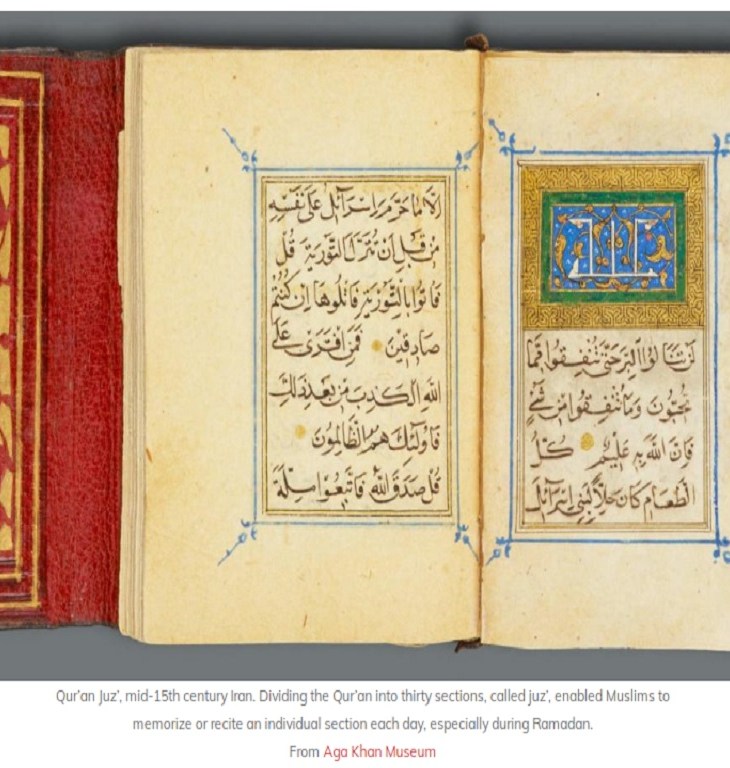 لن تنالوا البر حتى تنفقوا مما
تحبون وما تنفقوا من شئ
فان الله به عليم كل
الطعام كان حلا لبني اسرائل
الا ما حرم اسرائل على نفسه
من قبل ان تنزل التورية قل
فاتوا بالتورية فاتلوها ان كنتم
صادقين فمن افترى على
الله الكذب من بعد ذلك
فاولئك هم الظالمون
قل صدق الله فاتبعوا ملة
Qur'an Juz', mid-15th century Iran. Dividing the Qur'an into thirty sections, called juz', enabled Muslims to
memorize or recite an individual section each day, especially during Ramadan.
From Aga Khan Museum